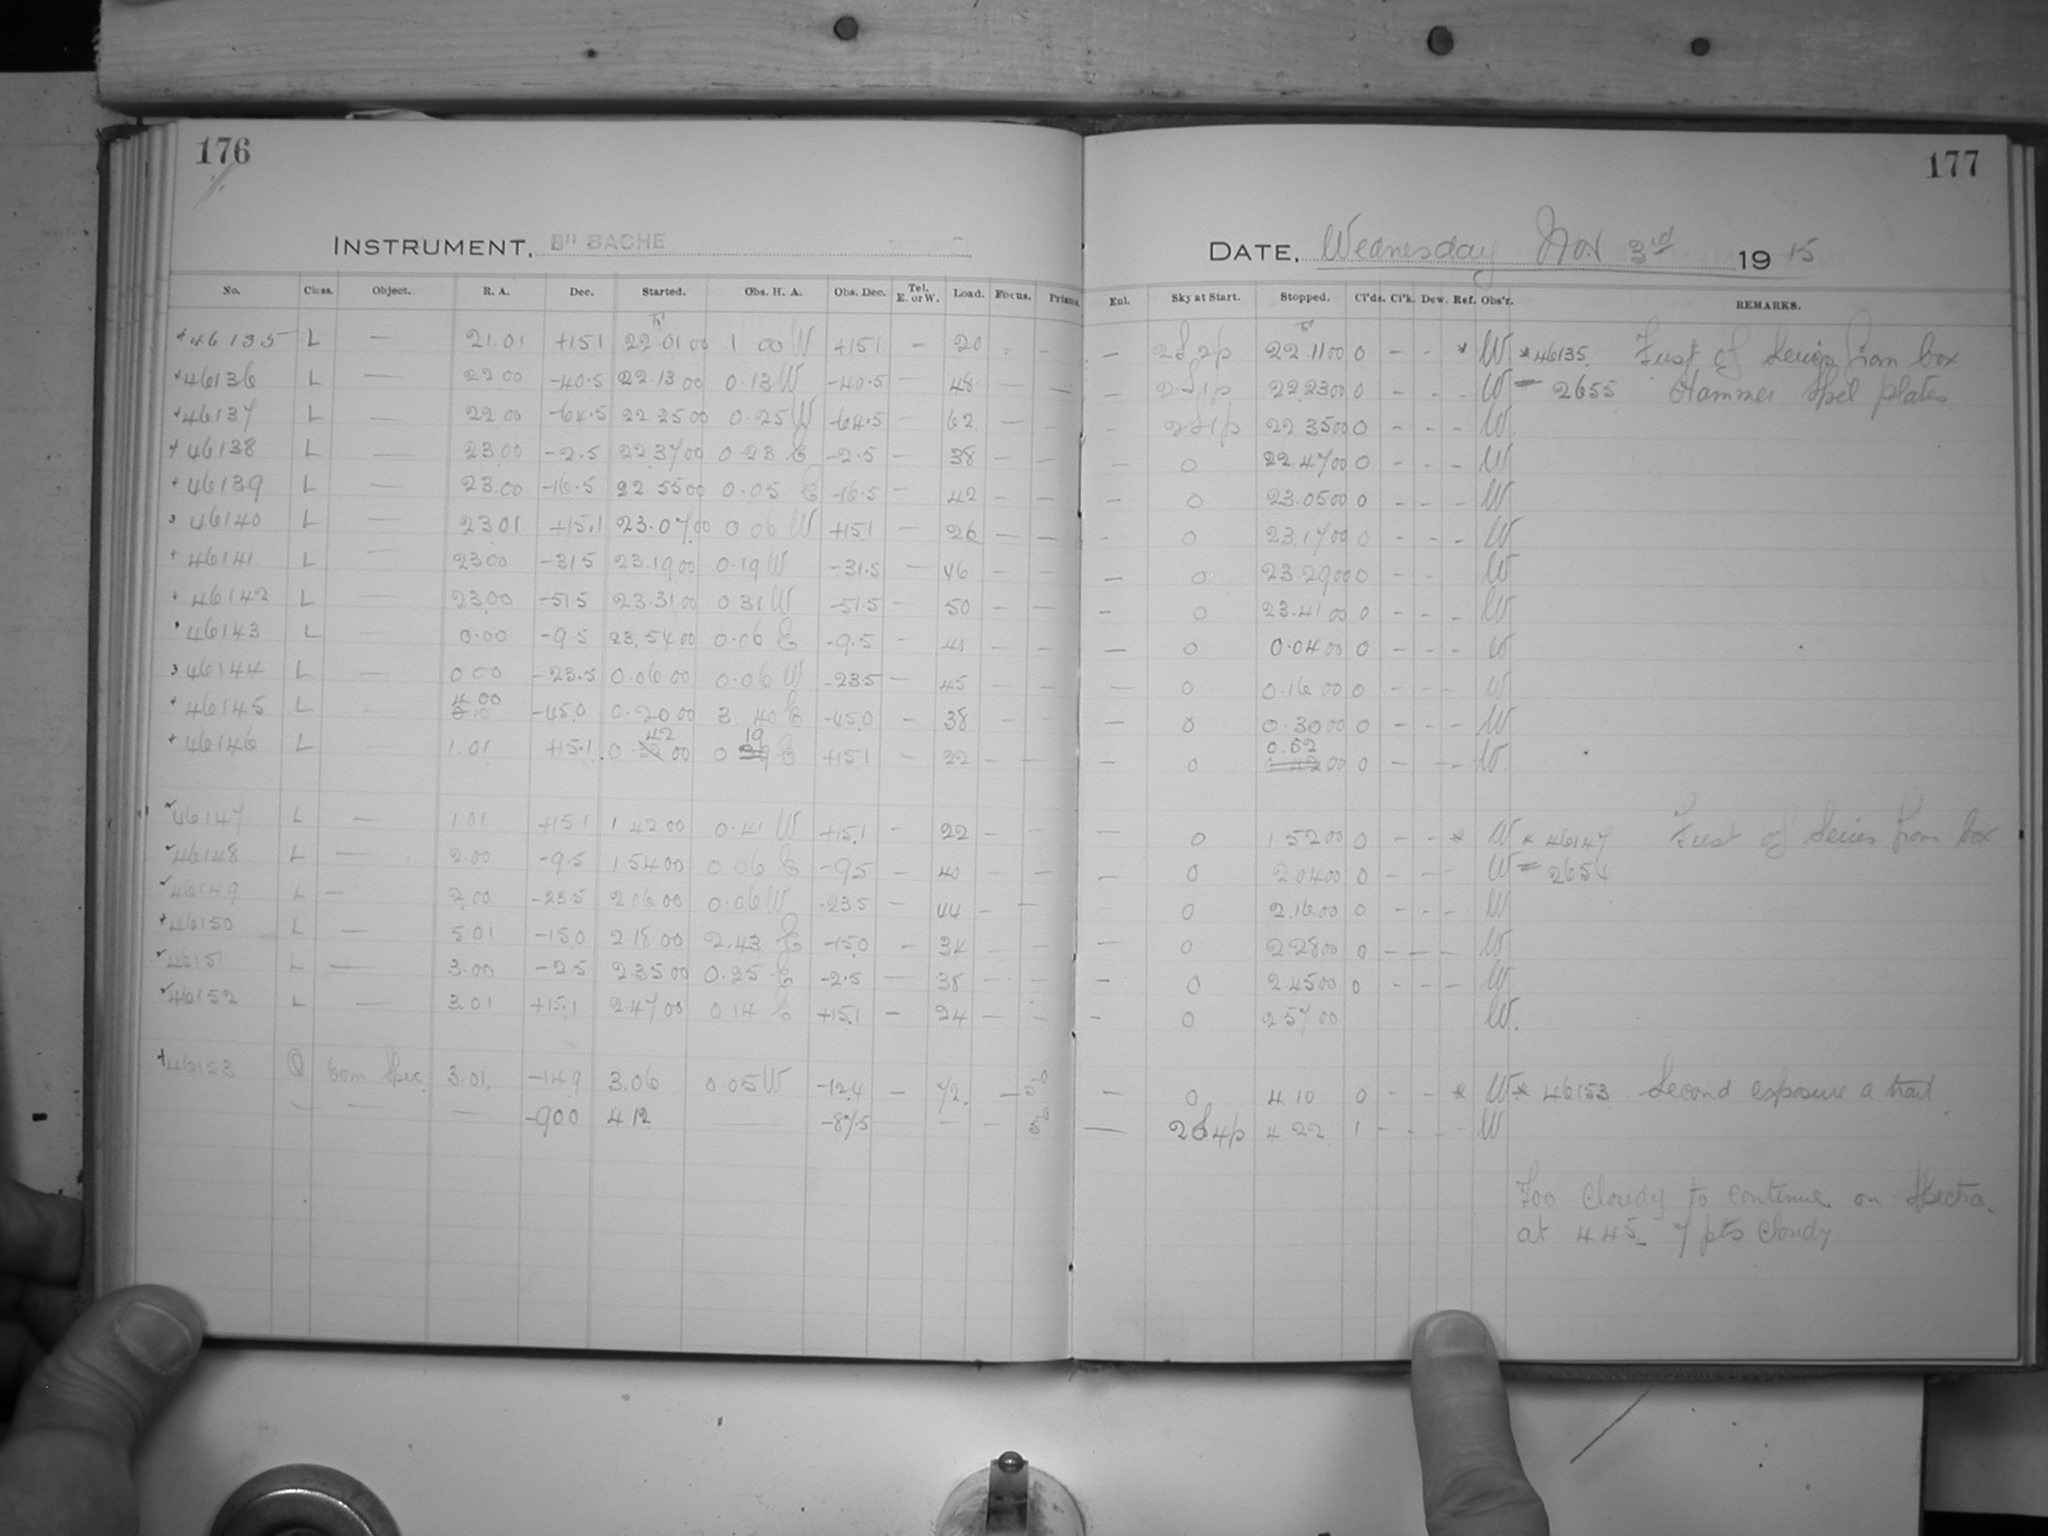 176
177
INSTRUMENT, 8" BACHE
DATE, Wednesday Nov 3rd 1915
No. Class. Object. R. A. Dec. Started. Obs. H. A. Obs. Dec. Tel. E. or W. Load. Focus. Prisms. Eul. Sky at Start. Stopped. Cl'ds. Cl'k. Dew. Ref. Obs'r. REMARKS.
+46135 L — 21.01 +15.1 22.01 00 1.00 W +15.1 — 20 - — — 2S2p 22.11 00 0 - - * W * 46135 First of Series from box
+46136 L — 22.00 -40.5 22.13 00 0.13 W -40.5 — 48 — — — 2S1p 22.23 00 0 - - - W = 2655 Hammer Spel plates
+46137 L — 22.00 -64.5 22 25 00 0.25 W -64.5 — 62 — - - 2S1p 22 35 00 0 - - - W.
+46138 L — 23.00 -2.5 22 37 00 0.23 E -2.5 — 38 — — — 0 22.47 00 0 - - - W
+46139 L — 23.00 -16.5 22.55 00 0.05 E -16.5 — 42 — — — 0 23.05 00 0 - - - W
46140 L — 23 01 +15.1 23.07 00 0 06 W +15.1 — 26 — — - 0 23.17 00 0 - - - W
+46141 L — 23 00 -31.5 23.19 00 0.19 W -31.5 — 46 — — — 0 23.29 00 0 - - W
+46142 L — 23.00 -51.5 23.31 00 0 31 W -51.5 — 50 — — — 0 23.41 00 0 - - - W
46143 L — 0.00 -9.5 23.54 00 0.06 E -9.5 - 40 - — — 0 0.04 00 0 - - - W
46144 L — 0 00 -23.5 0.06 00 0.06 W -23.5 — 45 - — — 0 0.16 00 0 - - - W
+46145 L 4.00 -45.0 0.20 00 3 40 E -45.0 - 38 - — — 0 0.30 00 0 - - - W
+46146 L 1.01 +15.1 0.42 00 0 19 E +15.1 - 22 - - — 0 0.52 00 0 - - - W.
46147 L — 1 01 +15.1 1 42 00 0.41 W +15.1 - 22 - - — 0 1 52 00 0 - - * W * 46147 First of Series from box
46148 L — 2.00 -9.5 1 54 00 0 06 E -9.5 - 40 - — — 0 2 04 00 0 - - - W = 2656
46149 L — 2.00 -23.5 2 06 00 0.06 W -23.5 - 44 - — — 0 2.16 00 0 - - - W
+46150 L — 5 01 -15.0 2 18 00 2.43 E -15.0 - 34 — — — 0 2 28 00 0 - - - W
46151 L — 3.00 -2.5 2 35 00 0.25 E -2.5 — 38 - — — 0 2 45 00 0 - - - W
46152 L — 3.01 +15.1 2 47 00 0 14 E +15.1 — 24 — - - 0 2 57 00 W.
+46153 Q 60m Spec. 3.01. -14.9 3.06 0 05 W -12.4 - 72. — 5.0 — 0 4 10 0 - - * W * 46153 Second exposure a trail
— — -90 0 4 12 — -87.5 — — — 2S4p 4 22 1 - - - W
Too Cloudy to continue on Spectra
at 4 45 7 pts Cloudy